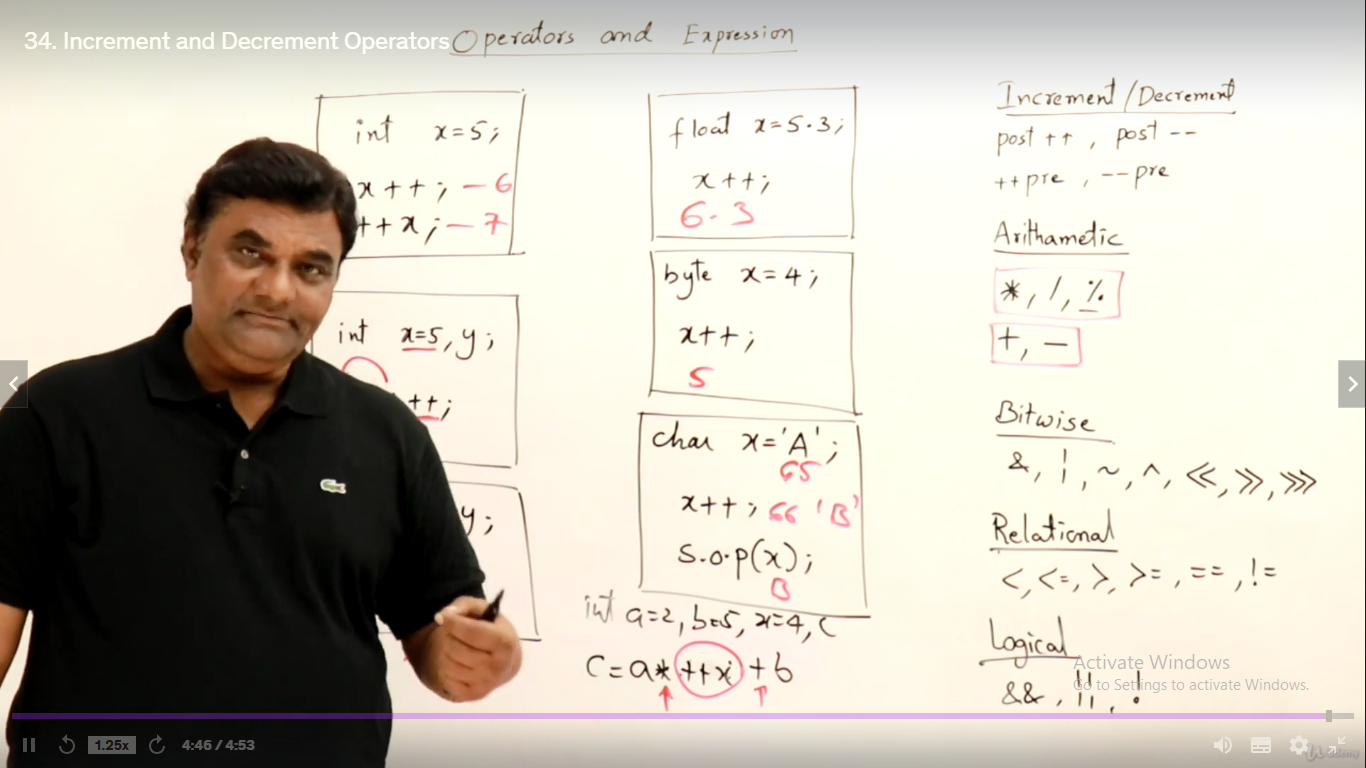 34. Increment and Decrement Operators
Operators and Expression
int x=5;
x++; – 6
++x; – 7
int x=5, y;
++;
y;
float x=5.3;
x++;
6.3
byte x=4;
x++;
5
char x='A';
65
x++; 66 'B'
S.O.P(x);
B
int a=2, b=5, x=4, c
c=a*++x+b
Increment/Decrement
post ++, post --
++pre, --pre
Arithametic
*, /, %
+, -
Bitwise
&, |, ~, ^, <<, >>, >>>
Relational
<, <=, >, >=, ==, !=
Logical
&&, ||, !
Activate Windows
Go to Settings to activate Windows.
1.25x
4:46 / 4:53